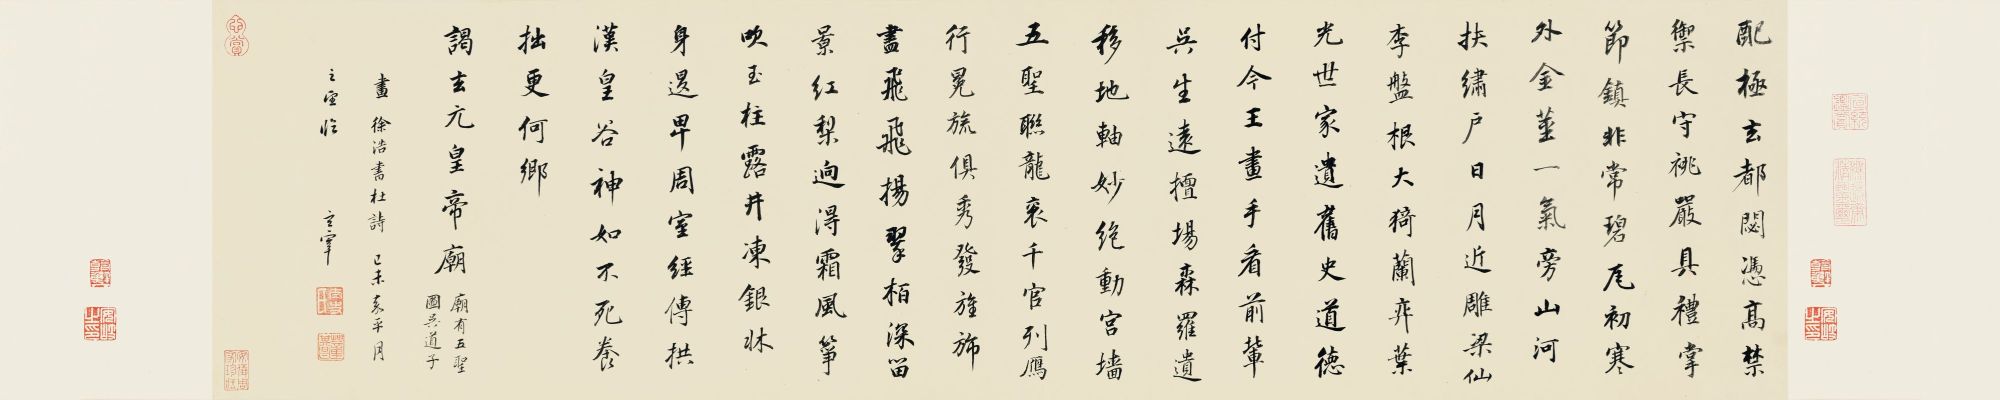 配極玄都閟憑高禁
禦長守祧嚴具禮掌
節鎮非常碧瓦初寒
外金莖一氣旁山河
扶繡戶日月近雕梁仙
李盤根大猗蘭奕葉
光世家遺舊史道德
付今王畫手看前輩
吳生遠擅場森羅遺
移地軸妙絕動宮墻
五聖聯龍袞千官列鴈
行冕旒俱秀發旌旆
盡飛飛揚翠栢深留
景紅梨迥得霜風箏
吹玉柱露井凍銀牀
身退卑周室經傳拱
漢皇谷神如不死養
拙更何鄉
謁玄元皇帝廟
廟有五聖
圖吳道子
畫 徐浩書杜詩 己未嘉平月
臨 玄宰